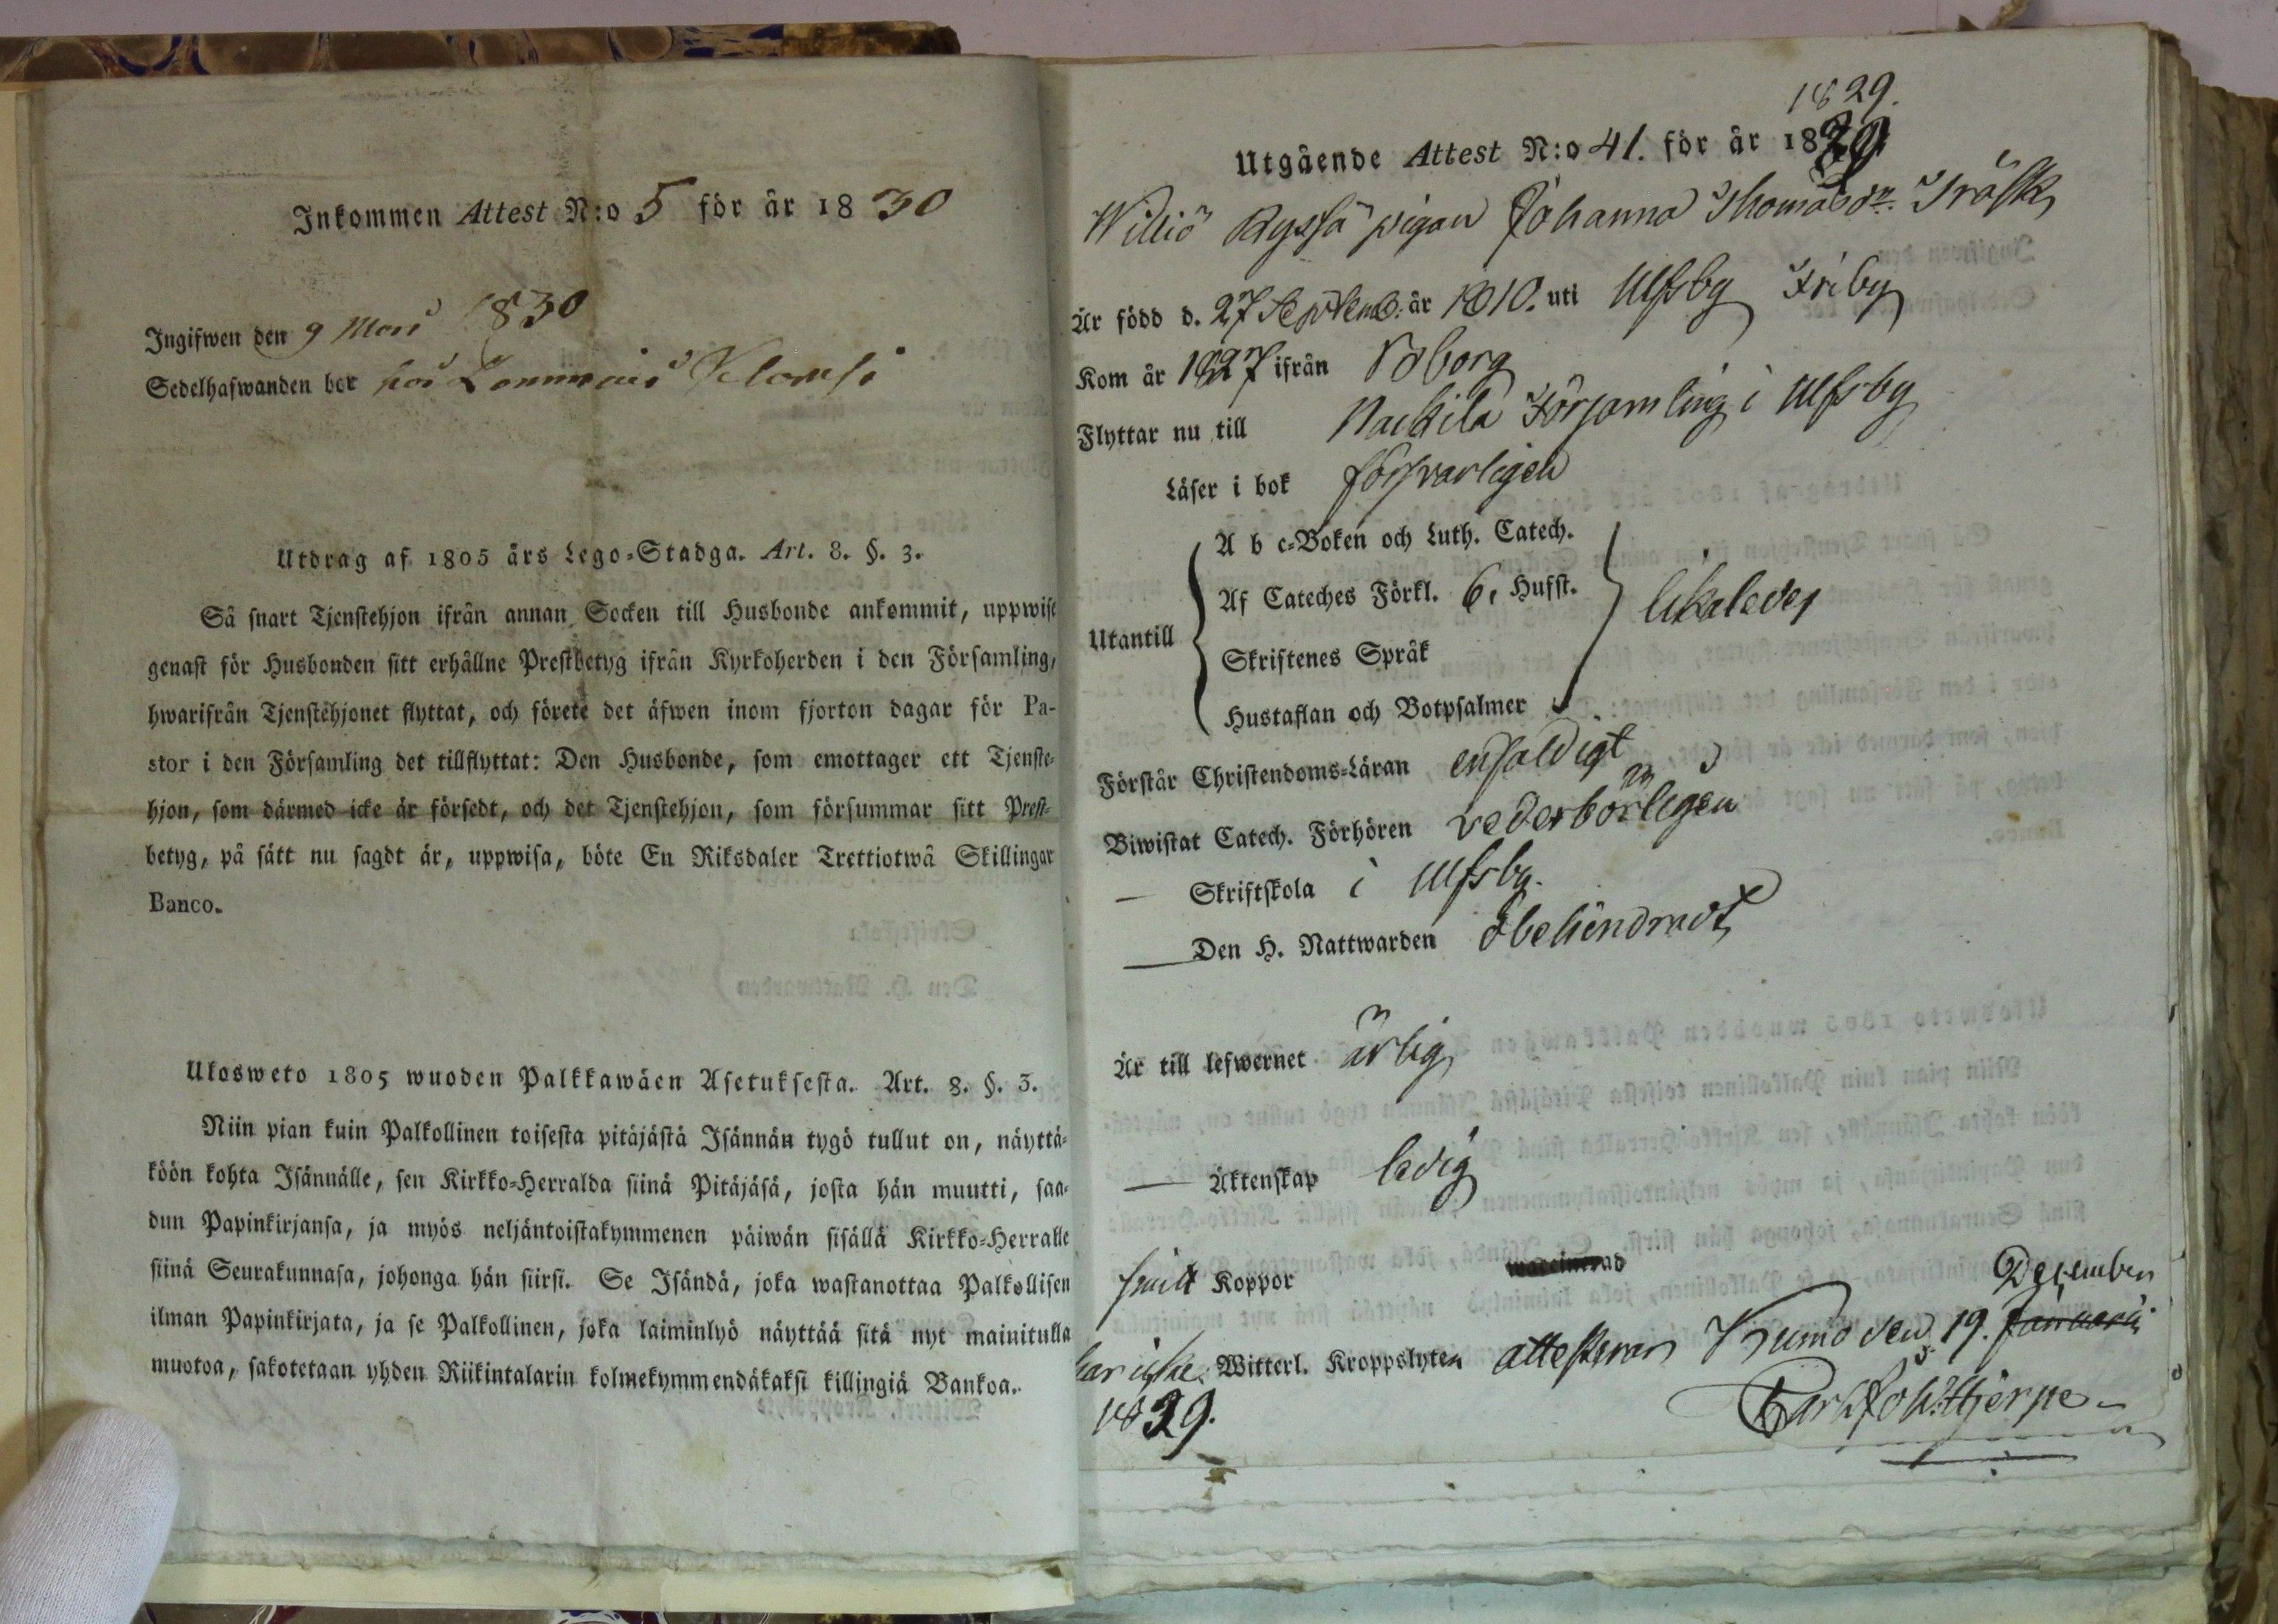 Inkommen Attest N:o 5 för år 1830
Ingifwen den 9 Mars 1830
Sedelhafwanden bor hos
Utdrag af 1805 års Lego-Stadga. Art. 8. §. 3.
Så snart Tjenstehjon ifrån annan Socken till Husbonde ankommit, uppwise
genast för Husbonden sitt erhållne Prestbetyg ifrån Kyrkoherden i den Församling,
hwarifrån Tjenstehjonet flyttat, och förete det äfwen inom fjorton dagar för Pa-
stor i den Församling det tillflyttat: Den Husbonde, som emottager ett Tjenste-
hjon, som därmed icke är försedt, och det Tjenstehjon, som försummar sitt Prest-
betyg, på sätt nu sagdt är, uppwisa, böte En Riksdaler Trettiotwå Skillingar
Banco.
Ulosweto 1805 wuoden Palkkawäen Asetuksesta. Art. 8. §. 3.
Niin pian kuin Palkollinen toisesta pitäjästä Isännän tygö tullut on, näyttä-
köön kohta Isännälle, sen Kirkko-Herralda siinä Pitäjäsä, josta hän muutti, saa-
dun Papinkirjansa, ja myös neljäntoistakymmenen päiwän sisällä Kirkko-Herralle
siinä Seurakunnasa, johonga hän siirsi. Se Isändä, joka wastanottaa Palkollisen
ilman Papinkirjata, ja se Palkollinen, joka laiminlyö näyttää sitä nyt mainitulla
muotoa, sakotetaan yhden Riikintalarin kolmekymmendäkaksi killingiä Bankoa.
1829.
Utgående Attest N:o 41. för år 1829
Williö Ryssä pigan Johanna Thomasdr. Träsk
Är född d. 27 Septemb. år 1810. uti Ulfsby Friby
Kom år 1827 ifrån Noborg
Flyttar nu till Nackila Församling i Ulfsby
Läser i bok försvarligen
A b c-Boken och Luth. Catech.
Af Cateches Förkl. 6, Hufst.
Utantill likaledes
Skriftenes Språk
Hustaflan och Botpsalmer
Förstår Christendoms-Läran enfaldigt
Biwistat Catech. Förhören vederbörligen
— Skriftskola i Ulfsby.
— Den H. Nattwarden obehindradt
Är till lefwernet ärlig
— Äktenskap ledig
haft Koppor
December
har icke Witterl. Kroppslyten attesteras Kumo den 19. Januarii
1829. Carl Joh. Hjerpe